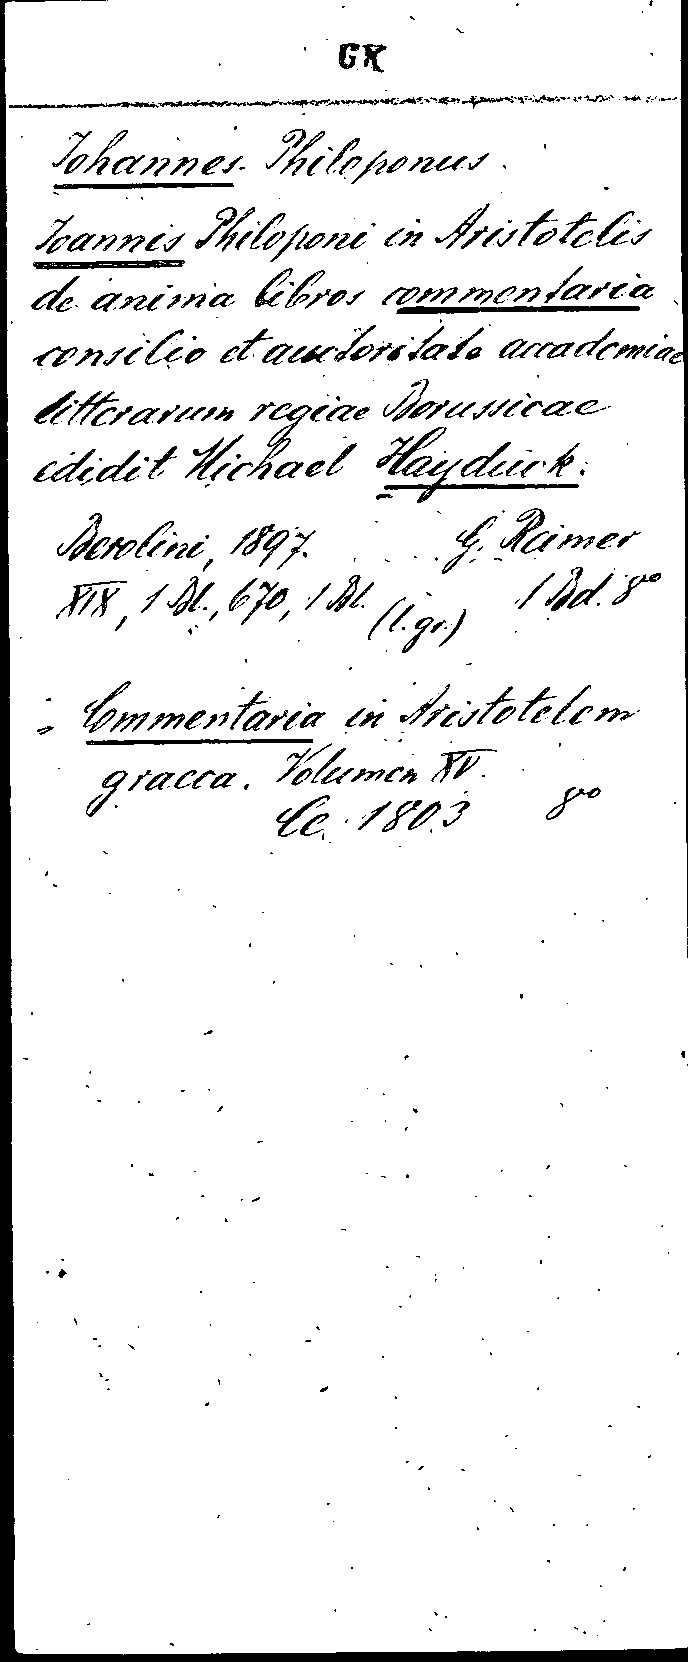 GK
Johannes Philoponus
Joannis Philoponi in Aristotelis
de anima libros commentaria
consilio et auctoritate accademiae
litterarum regiae Borussicae
edidit Michael Hayduck.
Berolini, 1897. G. Reimer
XIX, 1 Bl., 670, 1 Bl. (l. gr.) 1 Bd. 8vo
= Commentaria in Aristotelem
graeca. Volumen XV.
Ce. 1803 8vo